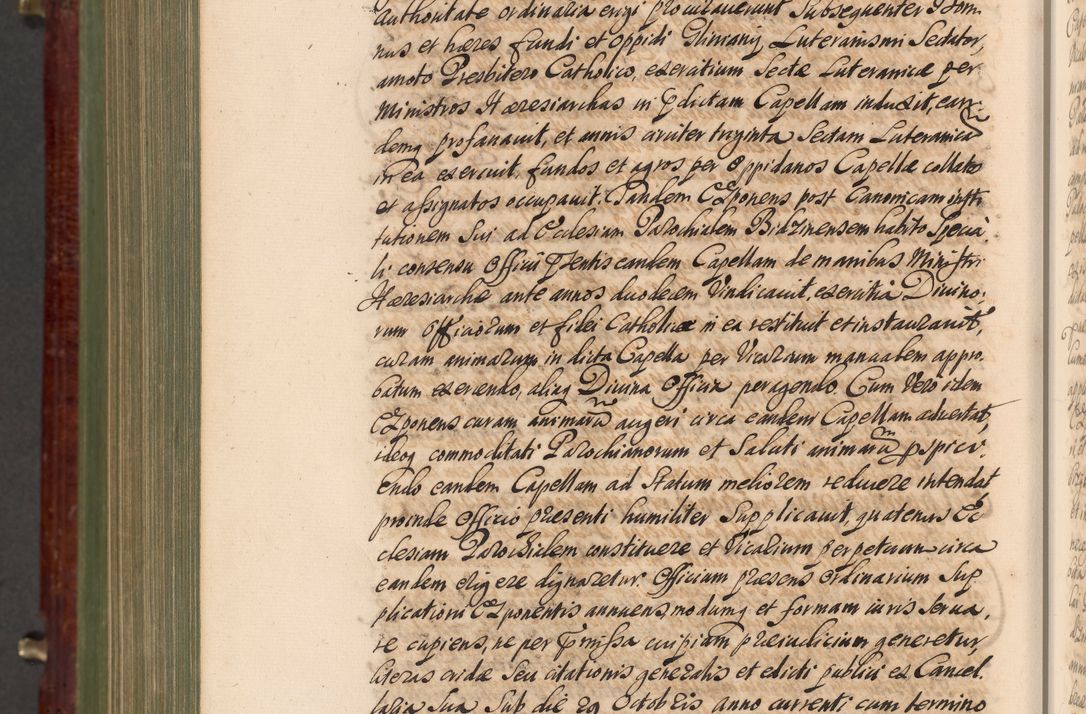 Authoritate ordinaria erigi procurauerunt Subsequenter Dom-
nus et hæres fundi et Oppidi Gliniany, Luteranismi Sectator,
amoto Presbitero Catholico, exercitium Sectæ Luteranicæ per
Ministros Hæresiarchas in p̱dictam Capellam induxit, ean-
demq profanauit, et annis circiter triginta Sectam Luteranicã
in ea exercuit, fundos et agros per Oppidanos Capellæ collatos
et assignatos occupauit. Tandem Exponens post Canonicam insti
tutionem Sui ad Ecclesiam Parochialem Bidzinensem habito Specia
li consensu Officii p̱sentis eandem Capellam de manibus Ministri
Hæresiarchæ ante annos duodecim Vindicauit, exercitia Diuino-
rum Officiorum et fidei Catholicæ in ea restituit et instaurauit,
curam animarum in dicta Capella per Vicarium manualem appro-
batum exercendo, aliaq Diuina Officia peragendo. Cum Vero idem
Exponens curam animarũ augeri circa eandem Capellam aduertat,
ideoq commoditati Parochianorum et Saluti animarũ p̱spici-
endo eandem Capellam ad Statum meliorem reducere intendat
proinde Officio præsenti humiliter Supplicauit, quatenus Ec
clesiam Parochialem constituere et Vicarium perpetuum circa
eandem erigere dignaretur. Officium præsens Ordinarium Sup
plicationi Exponentis annuens, modumq et formam iuris Serua-
re cupiens, ne per p̱missa cuipiam præiudicium generetur,
literas cridæ Seu citationis generalis et edicti publici ex Cancel
laria Sua Sub die 29 Octobris anno currenti cum termino